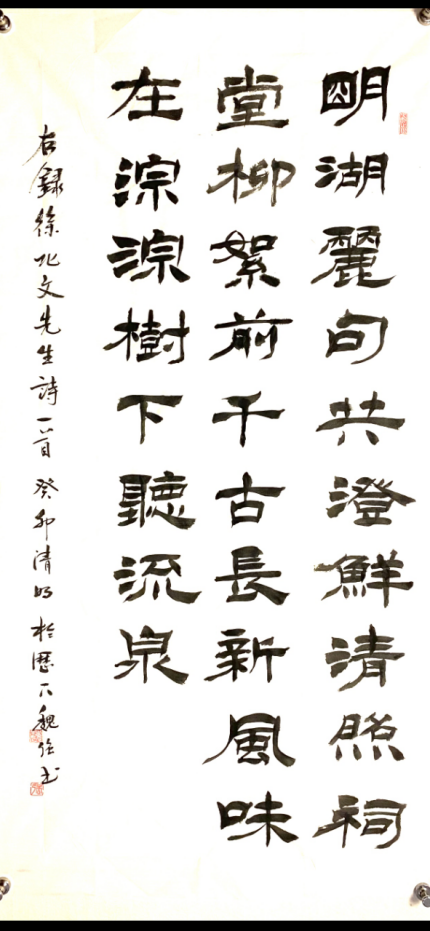 明湖麗句共澄鮮清照祠
堂柳絮前千古長新風味
在淙淙樹下聽流泉
右錄徐北文先生詩一首 癸卯清明於歷下魏書